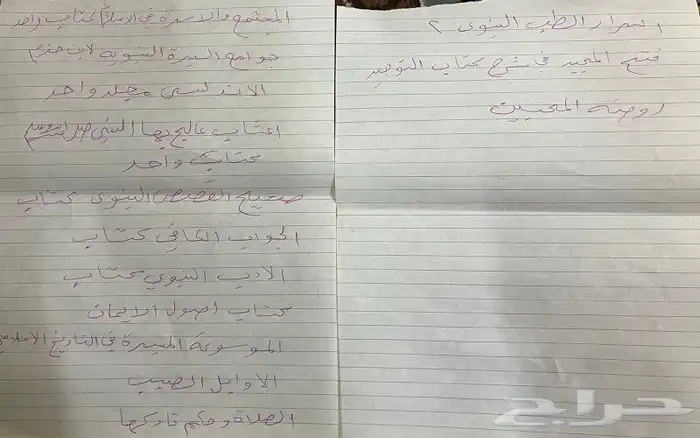 اسرار الطب النبوى ٢
فتح المجيد في شرح كتاب التوحيد
روضة المحبين
المجتمع والاسرة في الاسلام كتاب واحد
جوامع السيرة النبويه لابن حزم
الاندلسى مجلد واحد
اعشاب عالج بها النبي صلى
كتاب واحد
صحيح القصص النبوى كتاب
الجواب الكافي كتاب
الادب النبوي كتاب
كتاب اصول الايمان
الموسوعة الميسرة في التاريخ الاسلامي
الاوايل الصيب
الصلاة وحكم تاركها
حراج